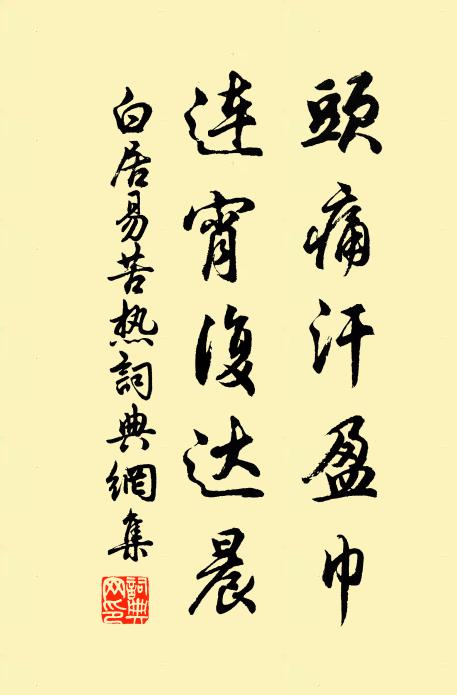 頭痛汗盈巾
連宵復达晨
白居易苦热詞典網集
詞典网印